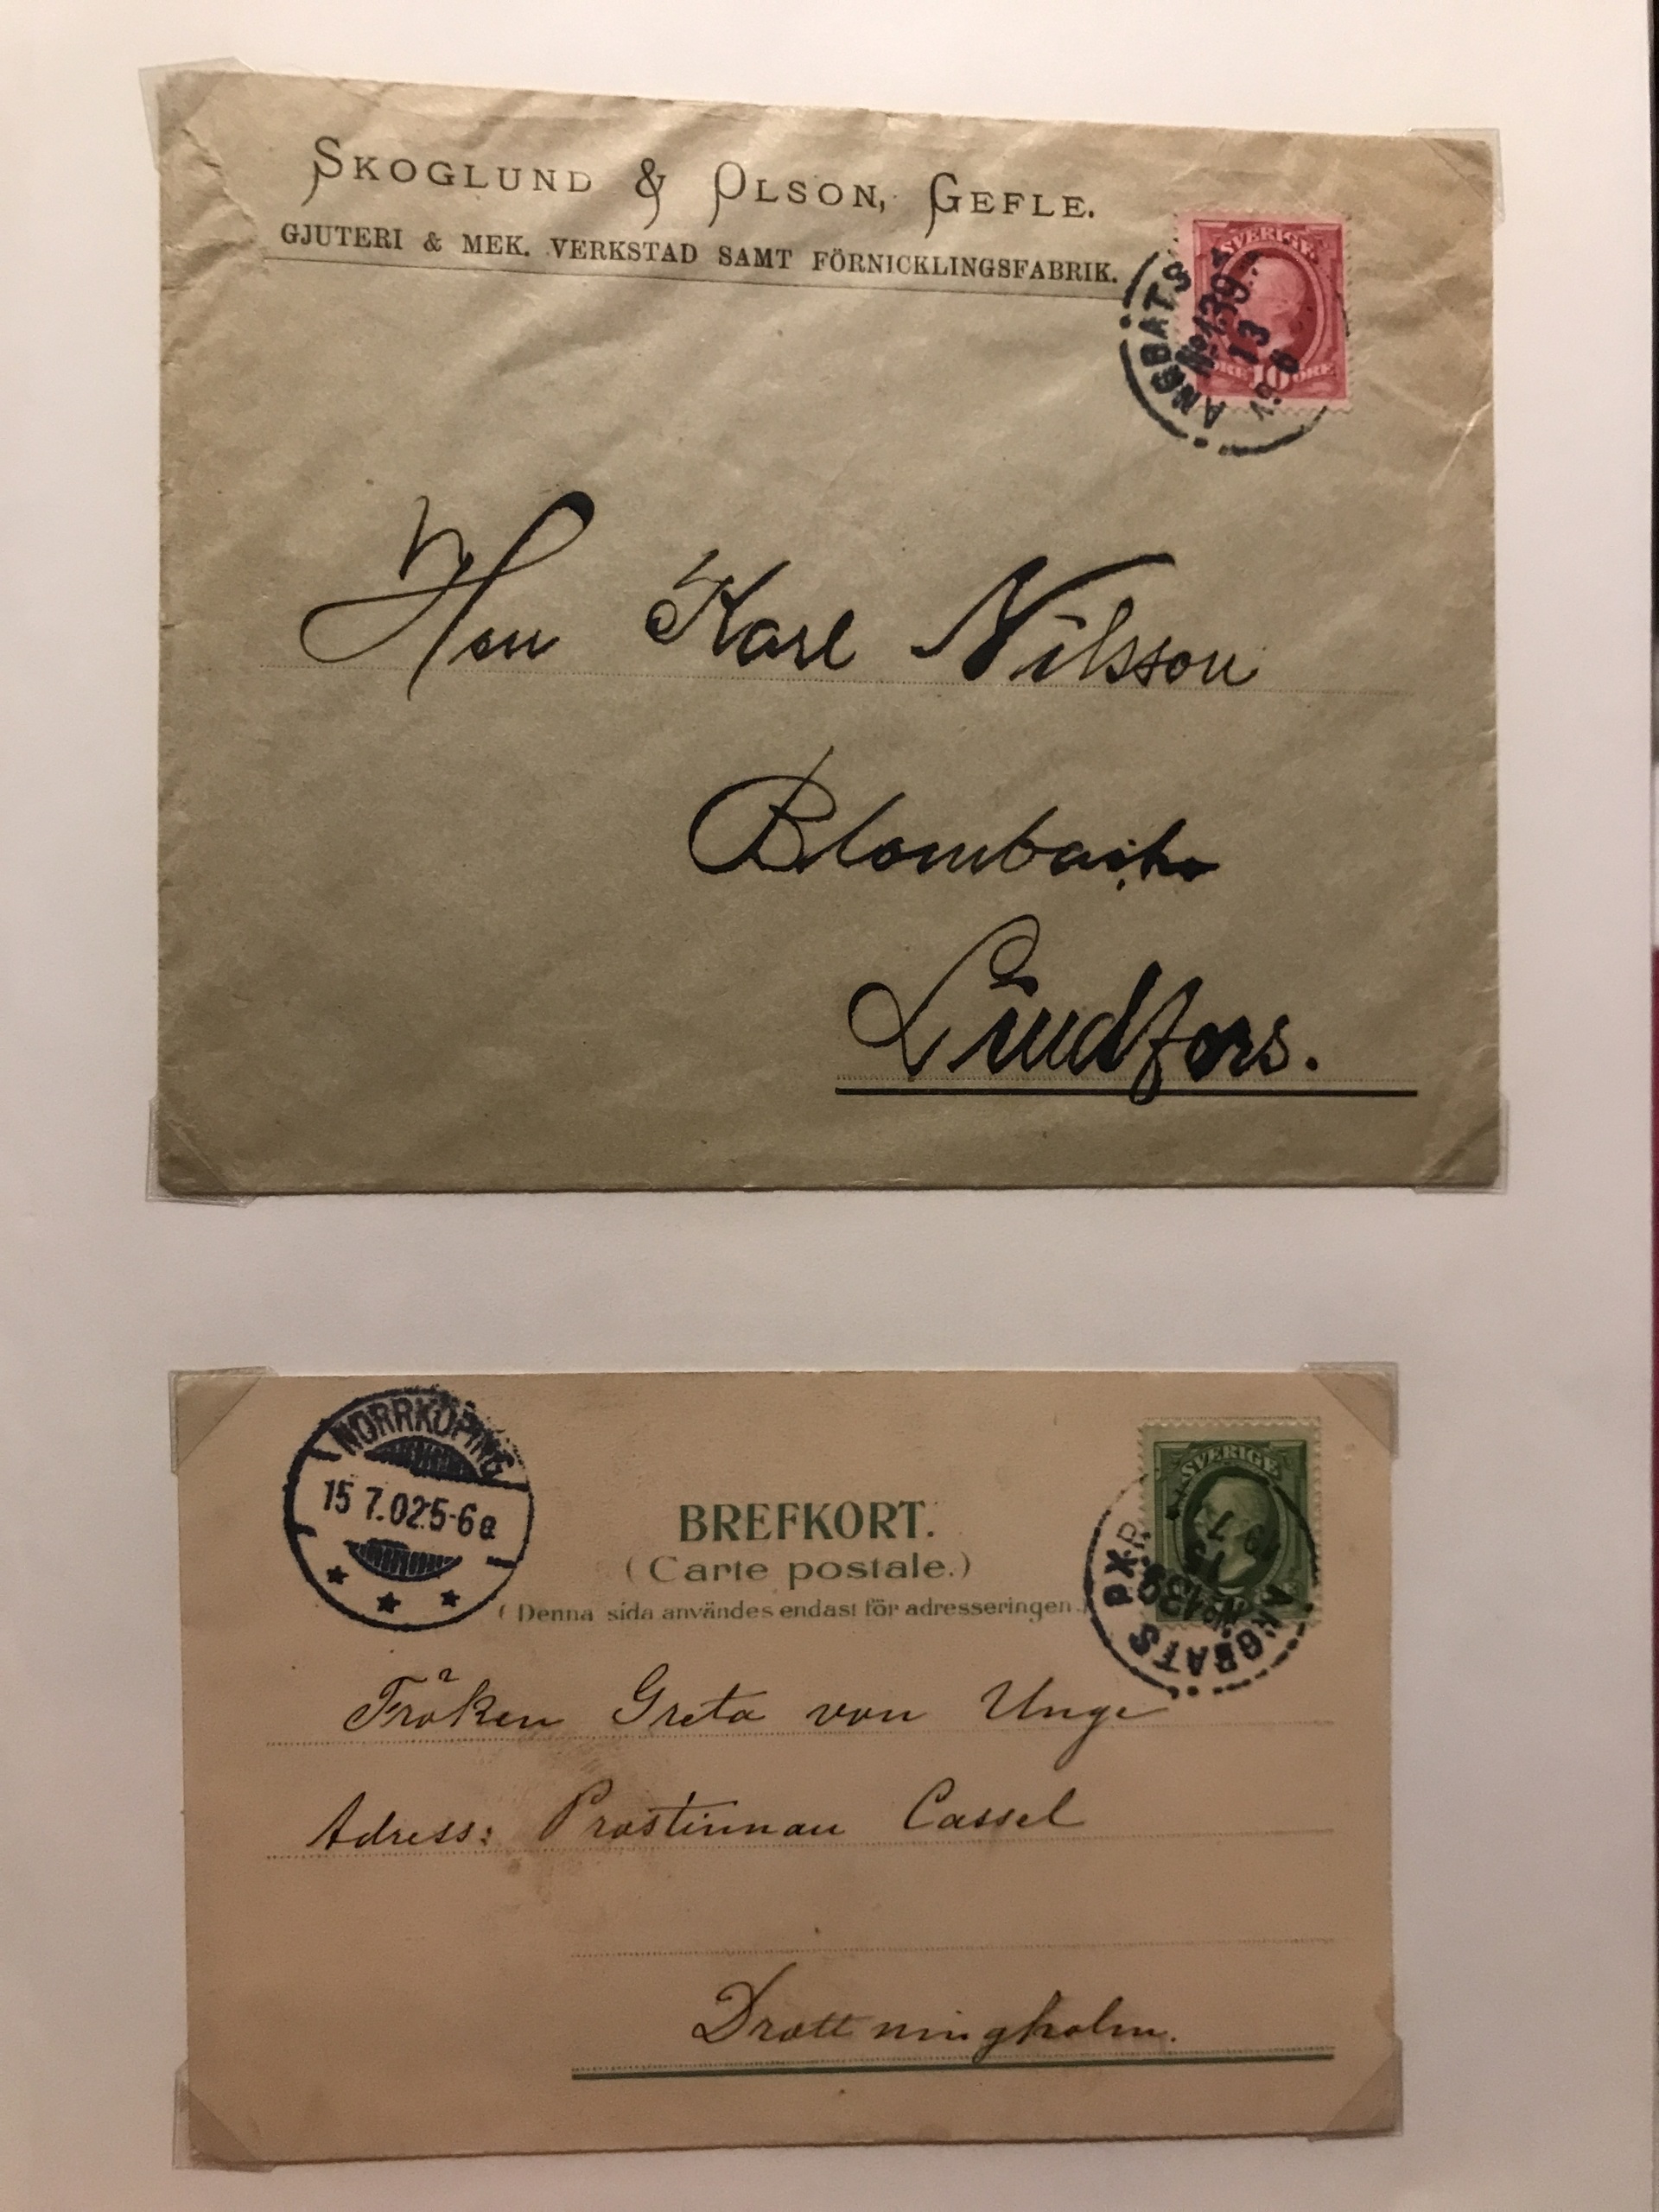 SKOGLUND & OLSON, GEFLE.
GJUTERI & MEK. VERKSTAD SAMT FÖRNICKLINGSFABRIK.
SVERIGE
10 ÖRE
ANGBATS
No 139
13
6
Herr Karl Nilsson
Lindfors.
NORRKÖPING
15 7.02.5-6 e
BREFKORT.
(Carte postale.)
(Denna sida användes endast för adresseringen.)
SVERIGE
ANGBATS PXP
No 139
15
7
Fröken Greta von Unge
Adress: Prostinnan Cassel
Drottningholm.